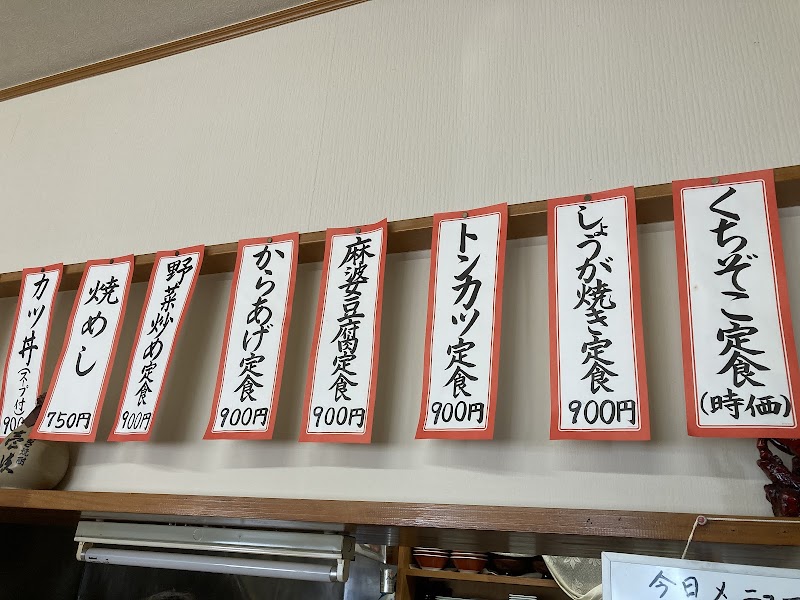 くちぞこ定食
(時価)
しょうが焼き定食
900円
トンカツ定食
900円
麻婆豆腐定食
900円
からあげ定食
900円
野菜炒め定食
900円
焼めし
750円
カツ丼
今日メニュー